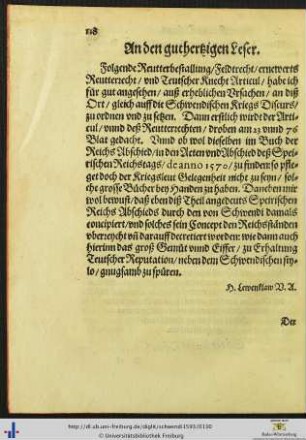 118
An den guthertzigen Leser.
Folgende Reutterbestallung/Feldtrecht/ernewerts
Reutterrecht/vnd Teutscher Knecht Articul/habe ich
für gut angesehen/auß erheblichen Vrsachen/an diß
Ort/gleich auff die Schwendischen Kriegs Discurs/
zu ordnen vnd zu setzen. Dann erstlich wirdt der Arti-
cul/vnnd deß Reutterrechten/droben am 23 vnnd 76
Blat gedacht. Vnnd ob wol dieselben im Buch der
Reichs Abschied/in den Acten vnd Abschied deß Spei-
rischen Reichstags/de anno 1570/zu finden: so pfle-
get doch der Kriegsleut Gelegenheit nicht zu seyn/sol-
che grosse Bücher bey Handen zu haben. Daneben mir
wol bewust/daß eben diß Theil angedeuts Speirischen
Reichs Abschieds durch den von Schwendi damals
concipiert/vnd solches sein Concept den Reichsständen
vberreycht vñ darauff decretiert worden: wie dann auch
hierinn das groß Gemüt vnnd Eiffer/zu Erhaltung
Teutscher Reputation/neben dem Schwendischen sty-
lo/gnugsamb zu spüren.
H. Lewenklaw V. A.
Der
http://dl.ub.uni-freiburg.de/diglit/schwendi1593/0130
© Universitätsbibliothek Freiburg
Baden-Württemberg